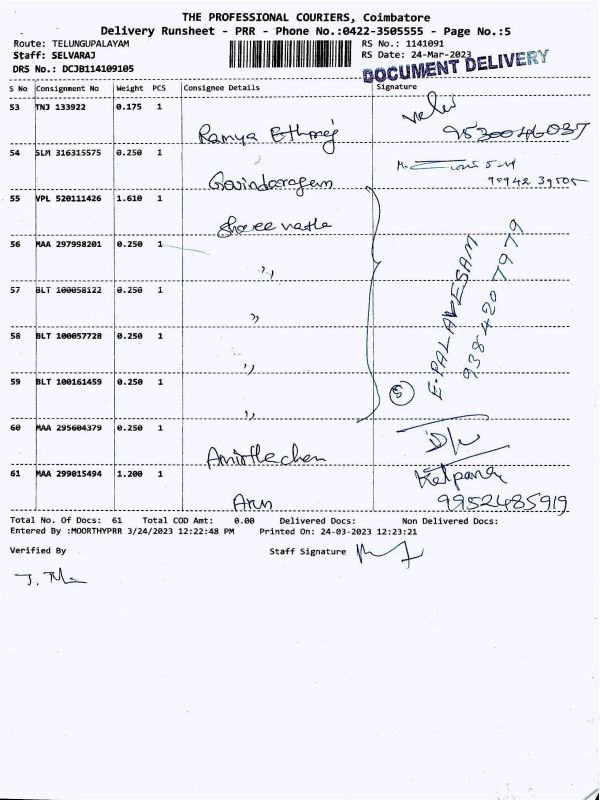 THE PROFESSIONAL COURIERS, Coimbatore
Delivery Runsheet - PRR - Phone No.:0422-3505555 - Page No.:5
Route: TELUNGUPALAYAM RS No.: 1141091
Staff: SELVARAJ RS Date: 24-Mar-2023
DRS No.: DCJB114109105 DOCUMENT DELIVERY
S No Consignment No Weight PCS Consignee Details Signature
53 TNJ 133922 0.175 1
Ramya 9530046037
54 SLM 316315575 0.250 1
Govindaragam
55 VPL 520111426 1.610 1
Shree
56 MAA 297998201 0.250 1
"
57 BLT 100058122 0.250 1
"
58 BLT 100057728 0.250 1
"
59 BLT 100161459 0.250 1
"
5 E.PALANESAM
938420 7979
60 MAA 295604379 0.250 1
61 MAA 299015494 1.200 1 Kalpana
Arun 9952485919
Total No. Of Docs: 61 Total COD Amt: 0.00 Delivered Docs: Non Delivered Docs:
Entered By :MOORTHYPRR 3/24/2023 12:22:48 PM Printed On: 24-03-2023 12:23:21
Verified By Staff Signature